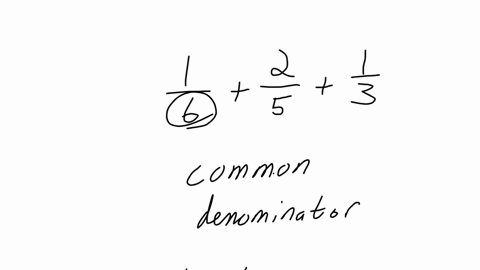 1/6 + 2/5 + 1/3
common
denominator